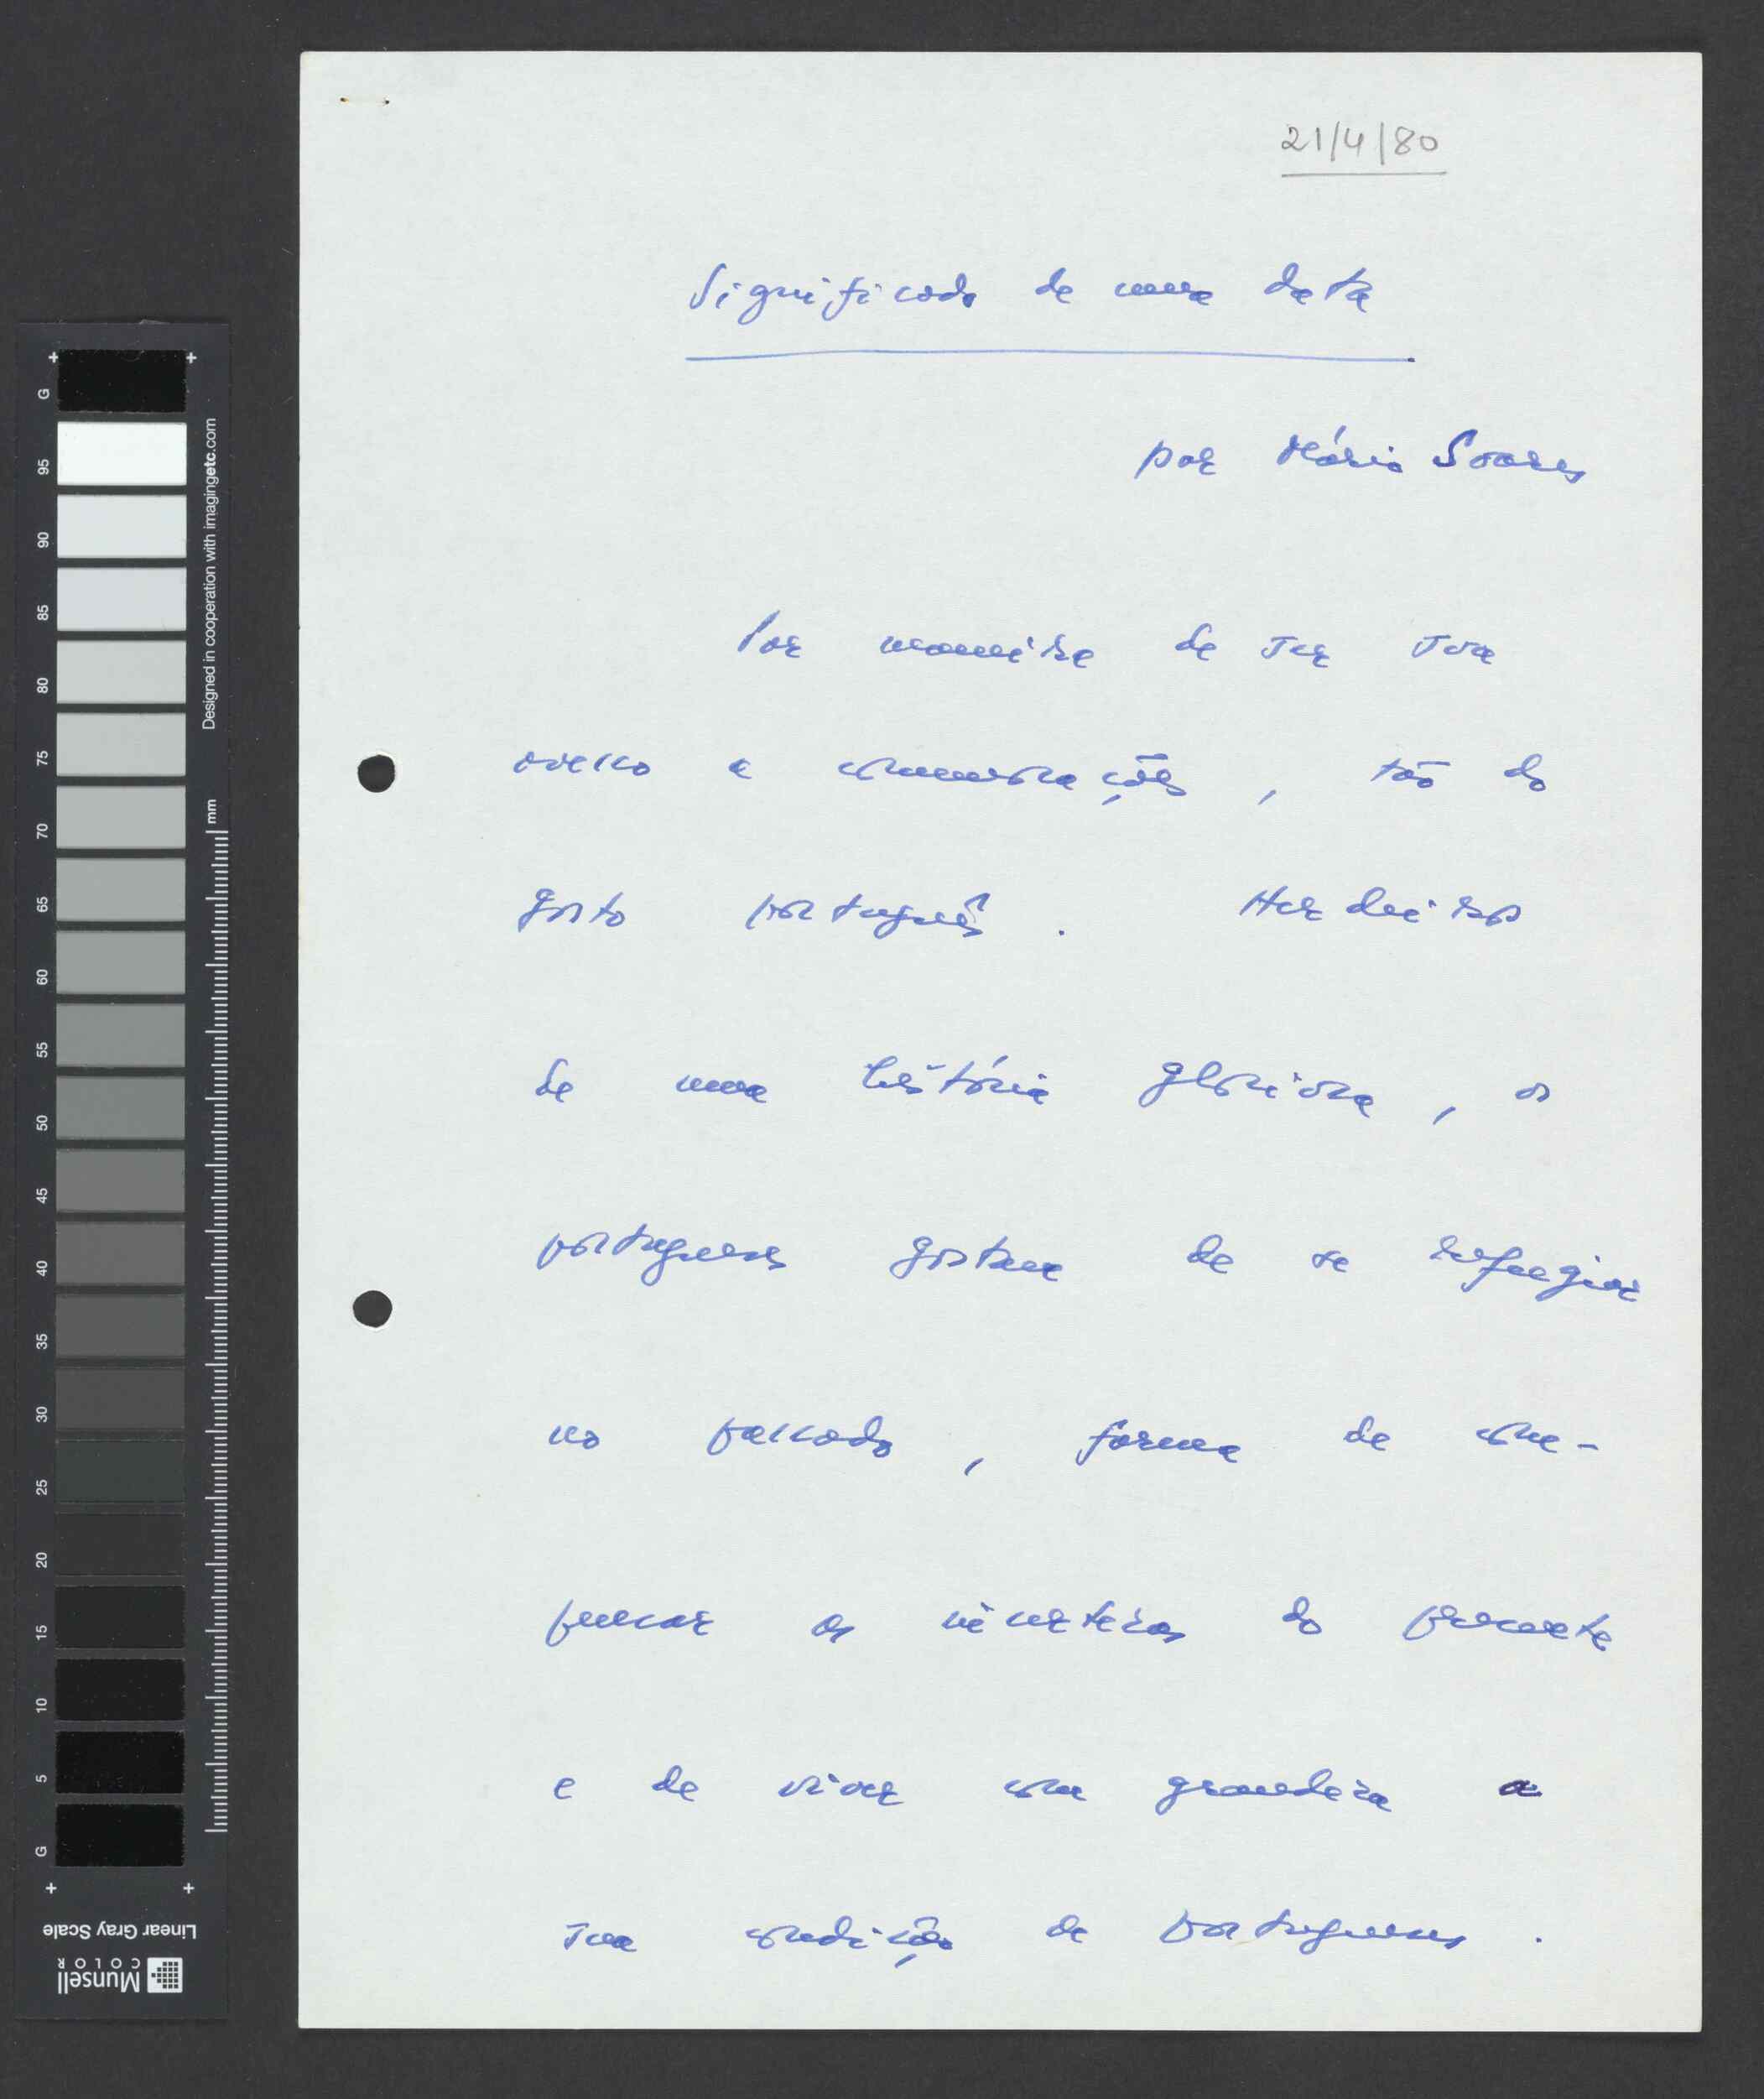 21/4/80
Significado de uma data
por Mário Soares
Por maneira de ser sou
avesso a comemorações, tão do
gosto português. Herdeiros
de uma história gloriosa, os
portugueses gostam de se refugiar
no passado, forma de com-
pensar as incertezas do presente
e de viver com grandeza a
sua condição de portugueses.
G
95
90
85
80
75
70
65
60
55
50
45
40
35
30
25
20
15
10
5
G
Designed in cooperation with imagingetc.com
mm
Linear Gray Scale
Munsell
COLOR